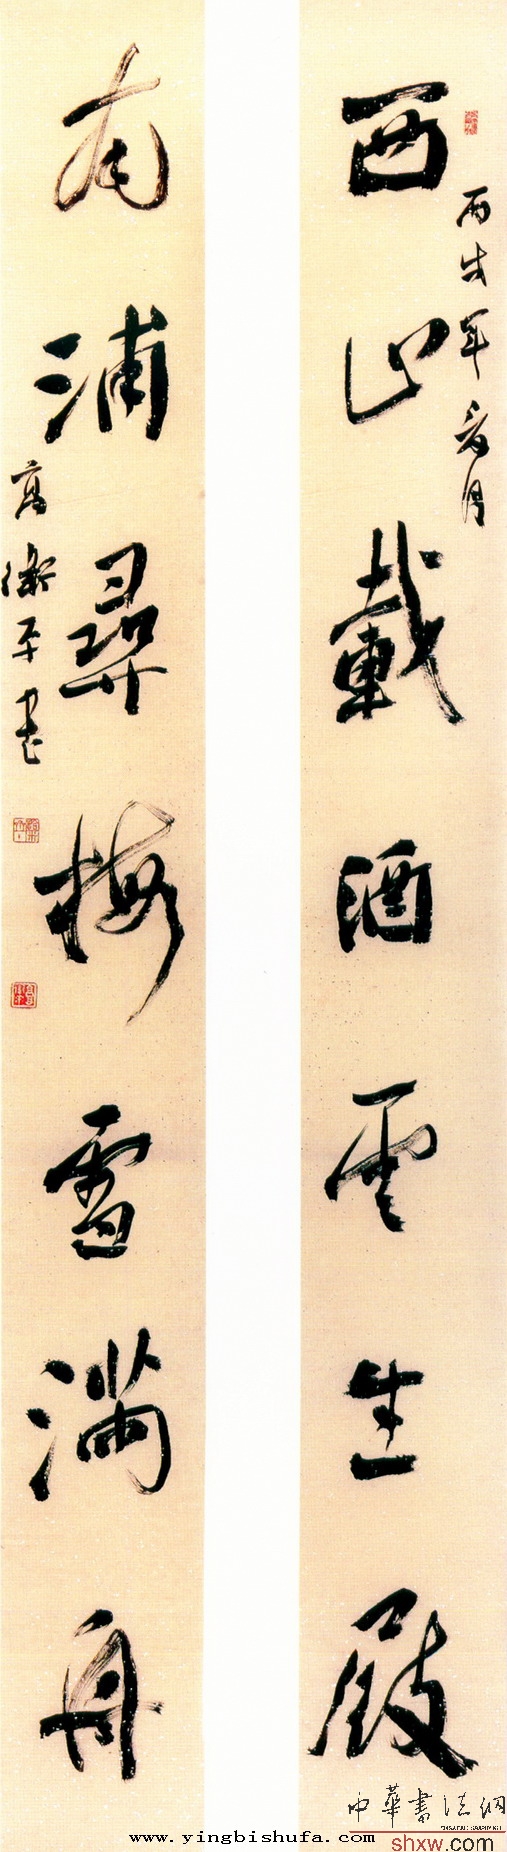 丙戌年夏月
西山載酒雲生屐
南浦尋梅雪滿舟
高衛平書
中華書法網
shxw.com
www.yingbishufa.com